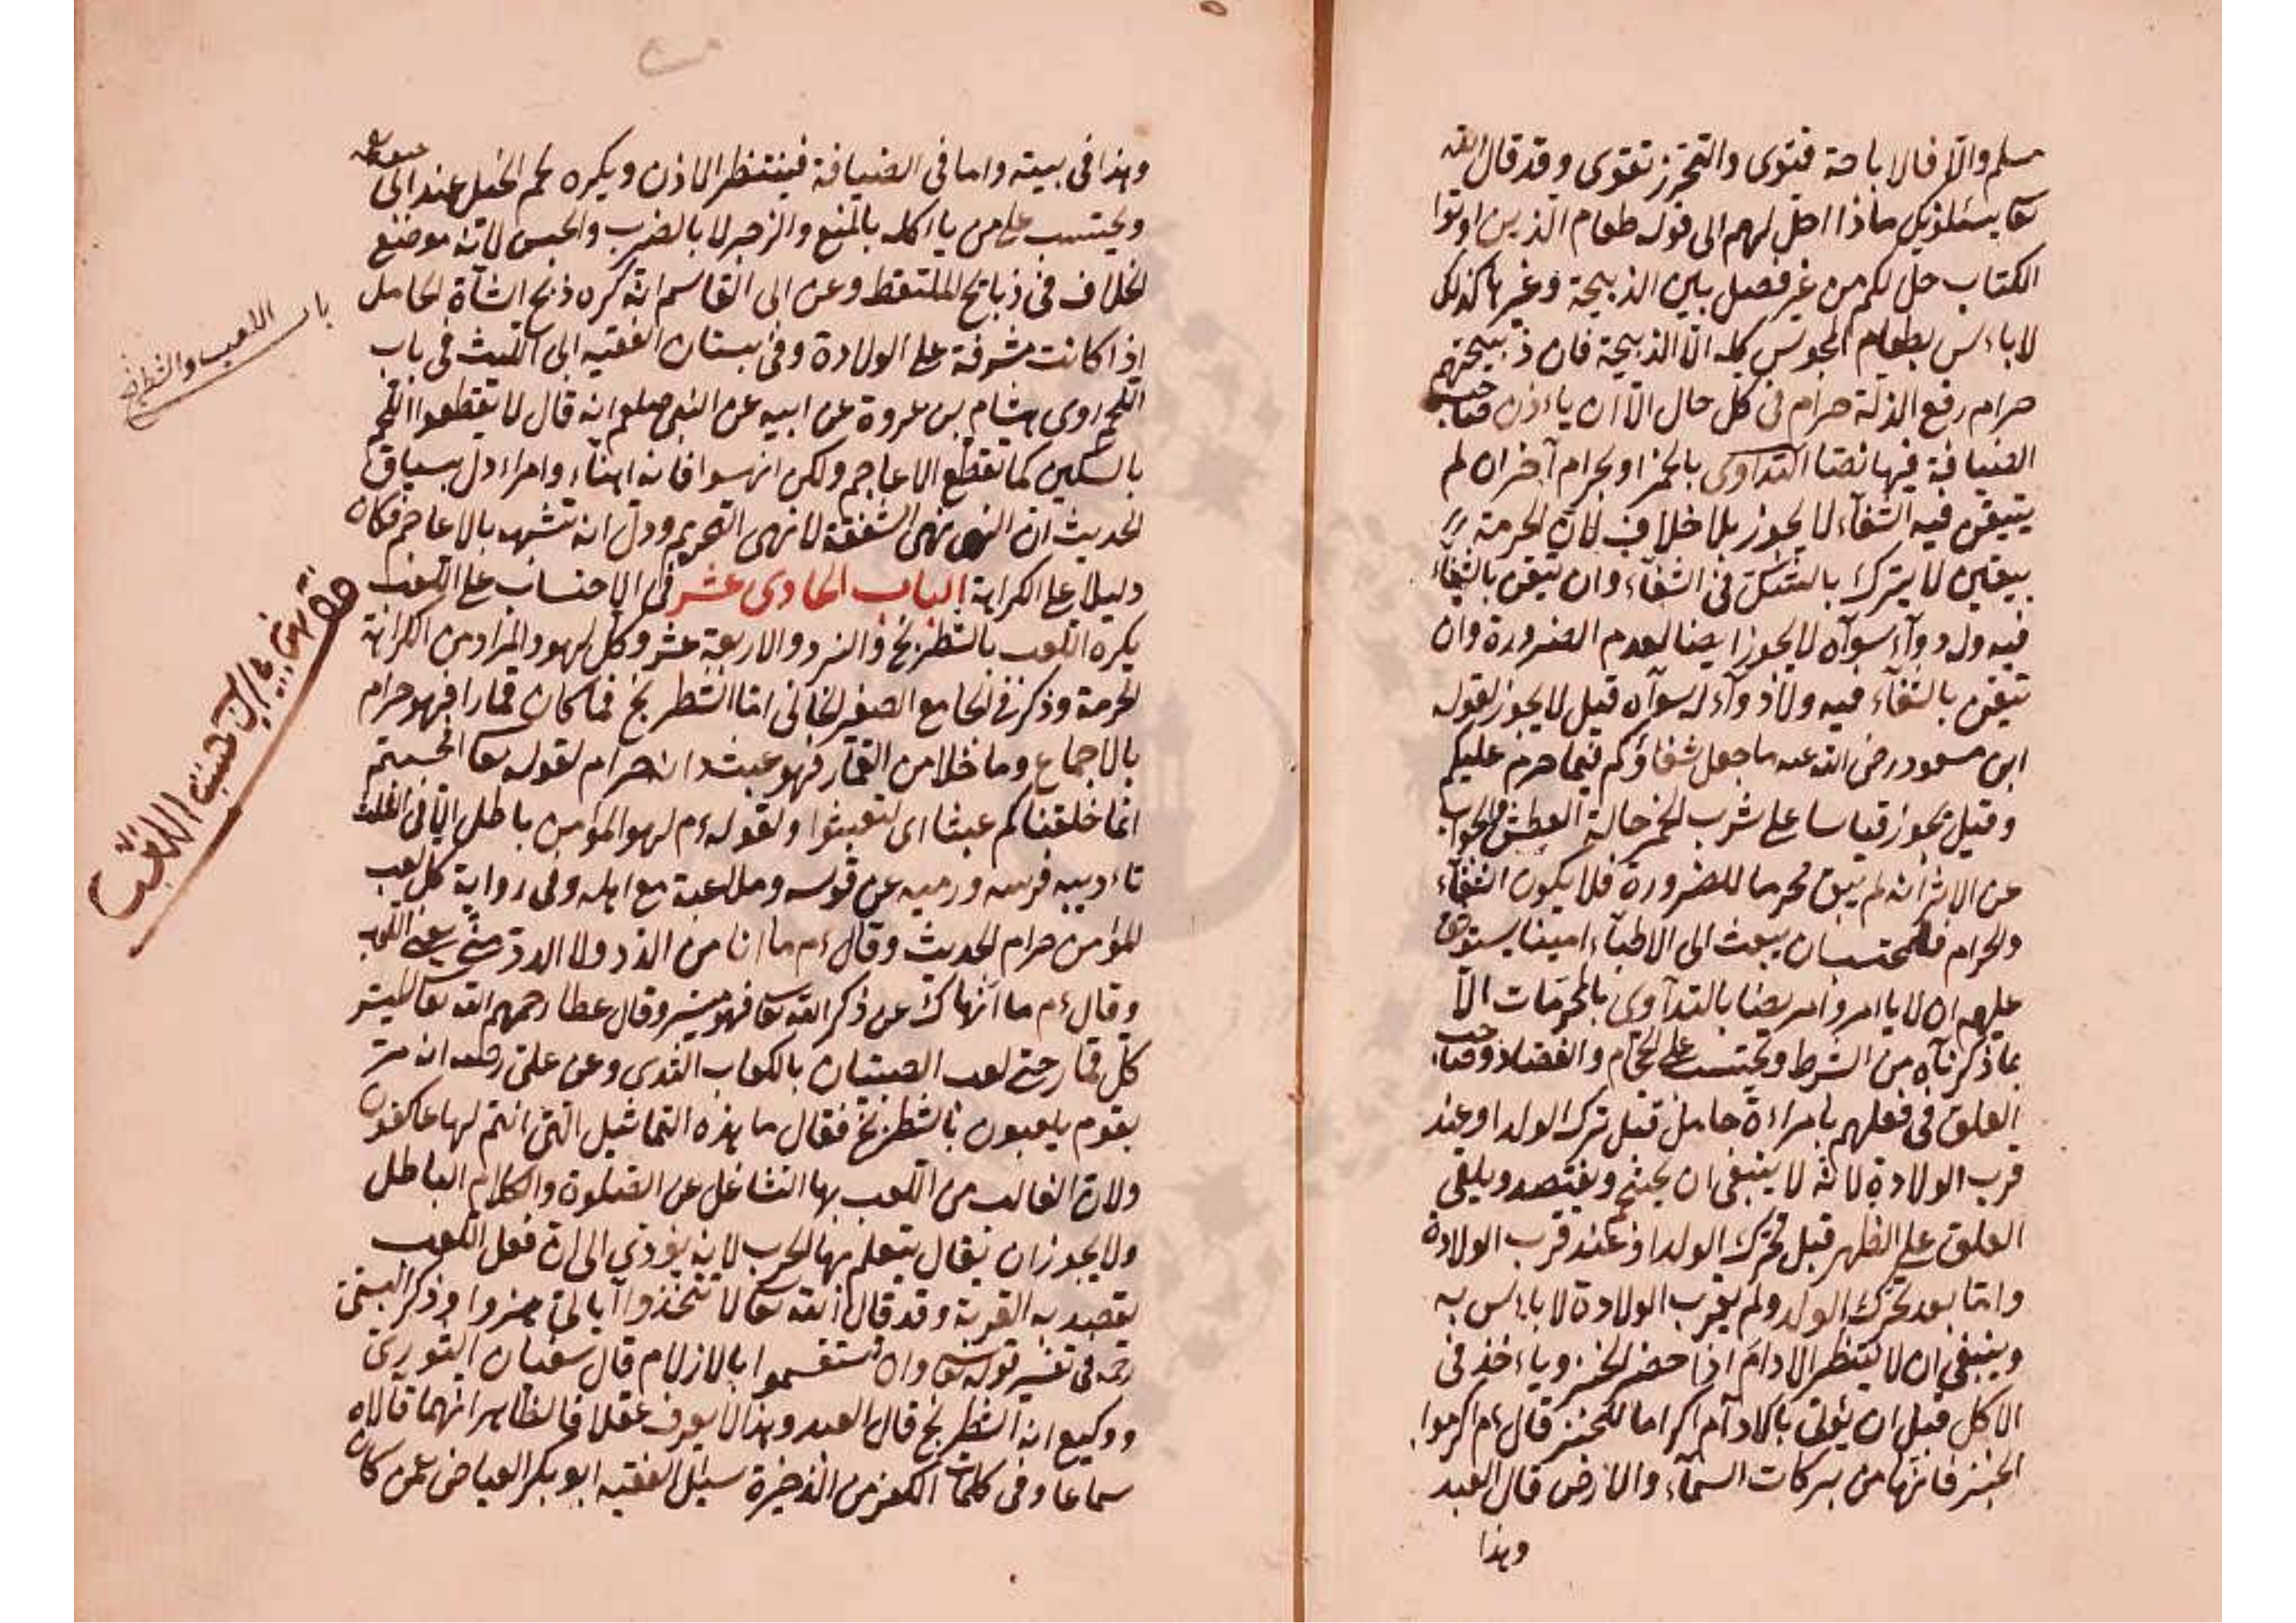 مسلم والا فالاباحة فتوى والتحرز تقوى وقد قال الله
تعا يسئلونك ماذا احل لهم الى قوله طعام الذين اوتوا
الكتاب حل لكم من غير فصل بين الذبيحة وغيرها كذلك
لا باءس بطعام المجوس كله الّا الذبيحة فان ذبيحتهم
حرام رفع الذلة حرام فى كل حال الّا ان ياءذن صاحب
الضيافة فيها نصّا التداوى بالخمر او بحرام آخر ان لم
يتيقن فيه الشفآء لا يجوز بلا خلاف لان الحرمة
بيقين لا يترك بالشك فى الشفآء وان تيقن بالشفآء
فيه وله دوآء سوآه لا يجوز ايضا لعدم الضرورة وان
تيقن بالشفآء فيه ولا دوآء له سوآه قيل لا يجوز لقوله
ابن مسعود رضى الله عنه ما جعل شفاؤكم فيما حرم عليكم
وقيل يجوز قياسا على شرب الخمر حالة العطش والجواب
عن الاثر انه لم يبق محرما للضرورة فلا يكون الشفآء
والحرام فللمحتسب ان يبعث الى الاطبآء امينا يستوثق
عليهم ان لا ياءمروا مريضا بالتدآوى بالمحرمات الّا
بما ذكرنآه من الشرط ويحتسب على الحجام والفصاد وصاحب
العلق فى فعلهم بامراءة حامل قبل تحرك الولد او عند
قرب الولادة لانّه لا ينبغى ان يحتجم ويفتصد ويلقى
العلق على الظهر قبل تحرك الولد او عند قرب الولادة
وامّا بعد تحرّك الولد ولم يقرب الولادة لا باءس به
وينبغى ان لا ينتظر الادام اذا حضر الخبز وياءخذ فى
الاكل قبل ان يؤتى بالادآم اكراما للخبز قال ءم اكرموا
الخبز فانّها من بركات السمآء والارض قال العبد
وهذا
وهذا فى بيته واما فى الضيافة فينتظر الاذن ويكره لحم الخيل عند ابى حنيفة
ويحتسب على من ياءكله بالمنع والزجر لا بالضرب والحبس لانّه موضع
الخلاف فى ذبايح الملتقط وعن ابى القاسم انّه كره ذبح الشآة الحامل
اذا كانت مشرفة على الولادة وفى بستان الفقيه ابى الليث فى باب
اللحم روى هشام بن عروة عن ابيه عن النبى صلعم انه قال لا تقطعوا اللحم
بالسكين كما تقطع الاعاجم ولكن انهسوا فانه اهنآء وامراء دل سياق
الحديث ان النهى نهى الشفقة لا نهى التحريم ودلّ انه تشبه بالاعاجم فكان
دليلا على الكراهة الباب الحادى عشر فى الاحتساب على اللعب
يكره اللعب بالشطرنج والنرد والاربعة عشر وكل لهو والمراد من الكراهة
الحرمة وذكر فى الجامع الصغير الخانى امّا الشطرنج فما كان قمارا فهو حرام
بالاجماع وما خلا من القمار فهو عبث وانه حرام لقوله تعا افحسبتم
انّما خلقناكم عبثا اى لتعبثوا ولقوله ءم لهو المؤمن باطل الّا فى الثلث
تاءديبه فرسه ورميه عن قوسه وملاعبة مع اهله وفى رواية كل لعب
المؤمن حرام الحديث وقال ءم ما انا من الدد ولا الدد منّى يعنى اللعب
وقال ءم ما الهاك عن ذكر الله تعا فهو ميسر وقال عطا رحمهم الله تعا الميسر
كل قمار حتى لعب الصبيان بالكعاب وعن على رضعه انه مرّ
بقوم يلعبون بالشطرنج فقال ما هذه التماثيل الّتى انتم لها عاكفون
ولان الغالب من اللعب بها التشاغل عن الصّلوة والكلام الباطل
ولا يجوز ان يقال يتعلم بها الحرب لانه يؤدى الى ان فعل اللعب
يقصد به القربة وقد قال الله تعا لا تتخذوا آياتى هزوا وذكر
رحمه فى تفسير قوله تعا وان تستقسموا بالازلام قال سفيان الثورى
ووكيع انه الشطرنج قال العبد وهذا لا يعرف عقلا فالظاهر انهما قالاه
سماعا وفى كلمات الكفر من الذخيرة سئل الفقيه ابو بكر العياضى عمن كان
باب اللعب والشطرنج
اللعب